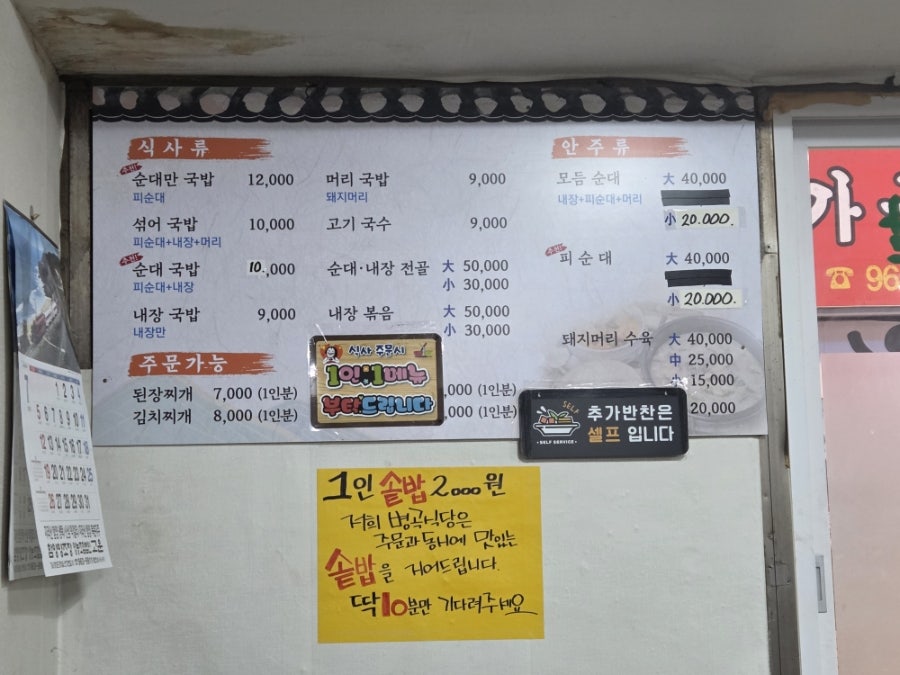 식사류
추천!
순대만 국밥 12,000
피순대
섞어 국밥 10,000
피순대+내장+머리
추천!
순대 국밥 10.,000
피순대+내장
내장 국밥 9,000
내장만
머리 국밥 9,000
돼지머리
고기 국수 9,000
순대·내장 전골 大 50,000
小 30,000
내장 볶음 大 50,000
小 30,000
주문가능
된장찌개 7,000 (1인분)
김치찌개 8,000 (1인분)
,000 (1인분)
,000 (1인분)
안주류
모듬 순대 大 40,000
내장+피순대+머리
小 20.000
추천!
피순대 大 40,000
小 20.000.
돼지머리 수육 大 40,000
中 25,000
小 15,000
20,000
식사 주문시
1인 1메뉴
부탁드립니다
SELF
추가반찬은
셀프 입니다
SELF SERVICE
1인 솥밥 2000원
저희 병곡식당은
주문과 동시에 맛있는
솥밥을 지어드립니다.
딱 10분만 기다려주세요
가
☎ 96